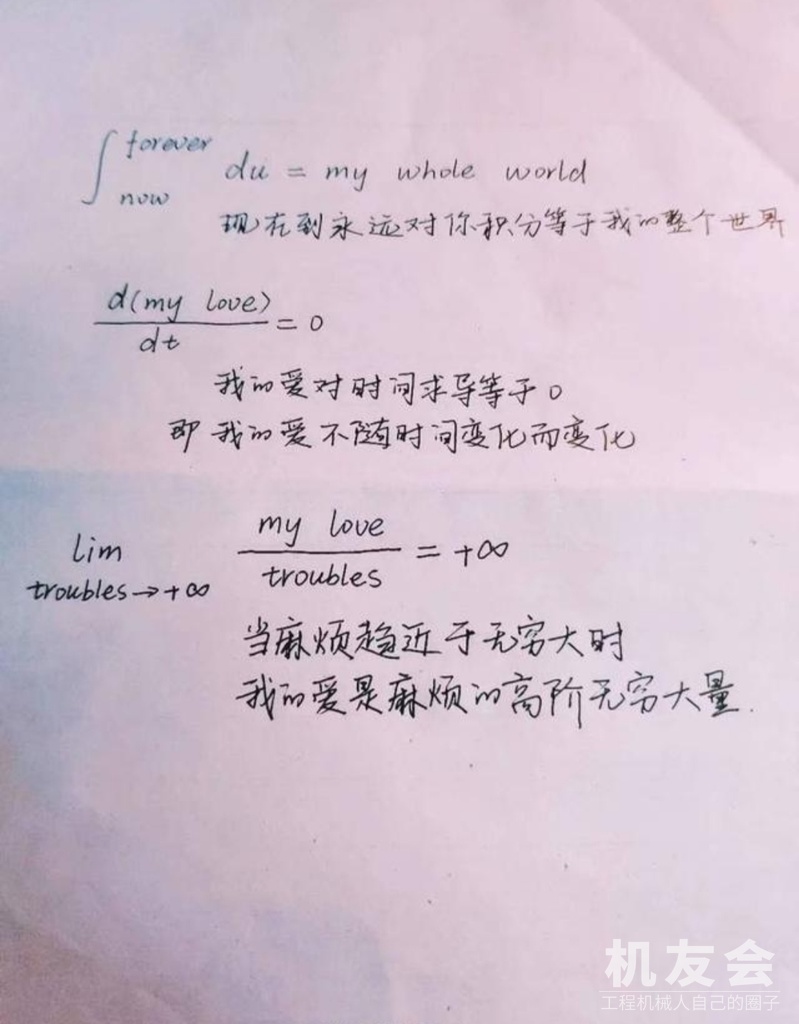 ∫ forever
now du = my whole world
现在到永远对你积分等于我的整个世界
d(my love)
dt = 0
我的爱对时间求导等于0
即我的爱不随时间变化而变化
lim
troubles→+∞ my love
troubles = +∞
当麻烦趋近于无穷大时
我的爱是麻烦的高阶无穷大量.
机友会
工程机械人自己的圈子